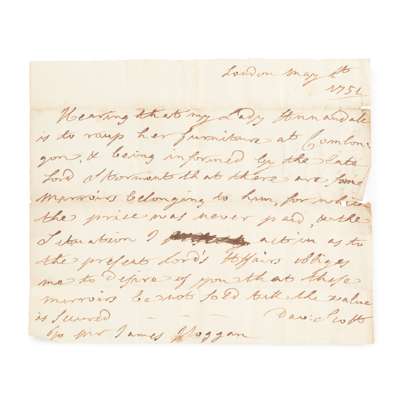 London May
1751
Hearing that my Lady Annandale
is to roup her furniture at Comlon-
gon, & being informed by the late
Lord Stormont that there are some
mirrors belonging to him, for which
the price was never paid, & the
Situation I act in as to
the present Lord's Affairs obliges
me to Desire of you that these
mirrors be not sold till the value
is Secured
Davd: Scott
To Mr James Hoggan